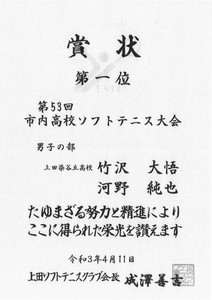 賞状
第一位
第53回
市内高校ソフトテニス大会
男子の部
上田染谷丘高校 竹沢 大悟
河野 純也
たゆまざる努力と精進により
ここに得られた栄光を讃えます
令和3年4月11日
上田ソフトテニスクラブ会長 成澤善吉